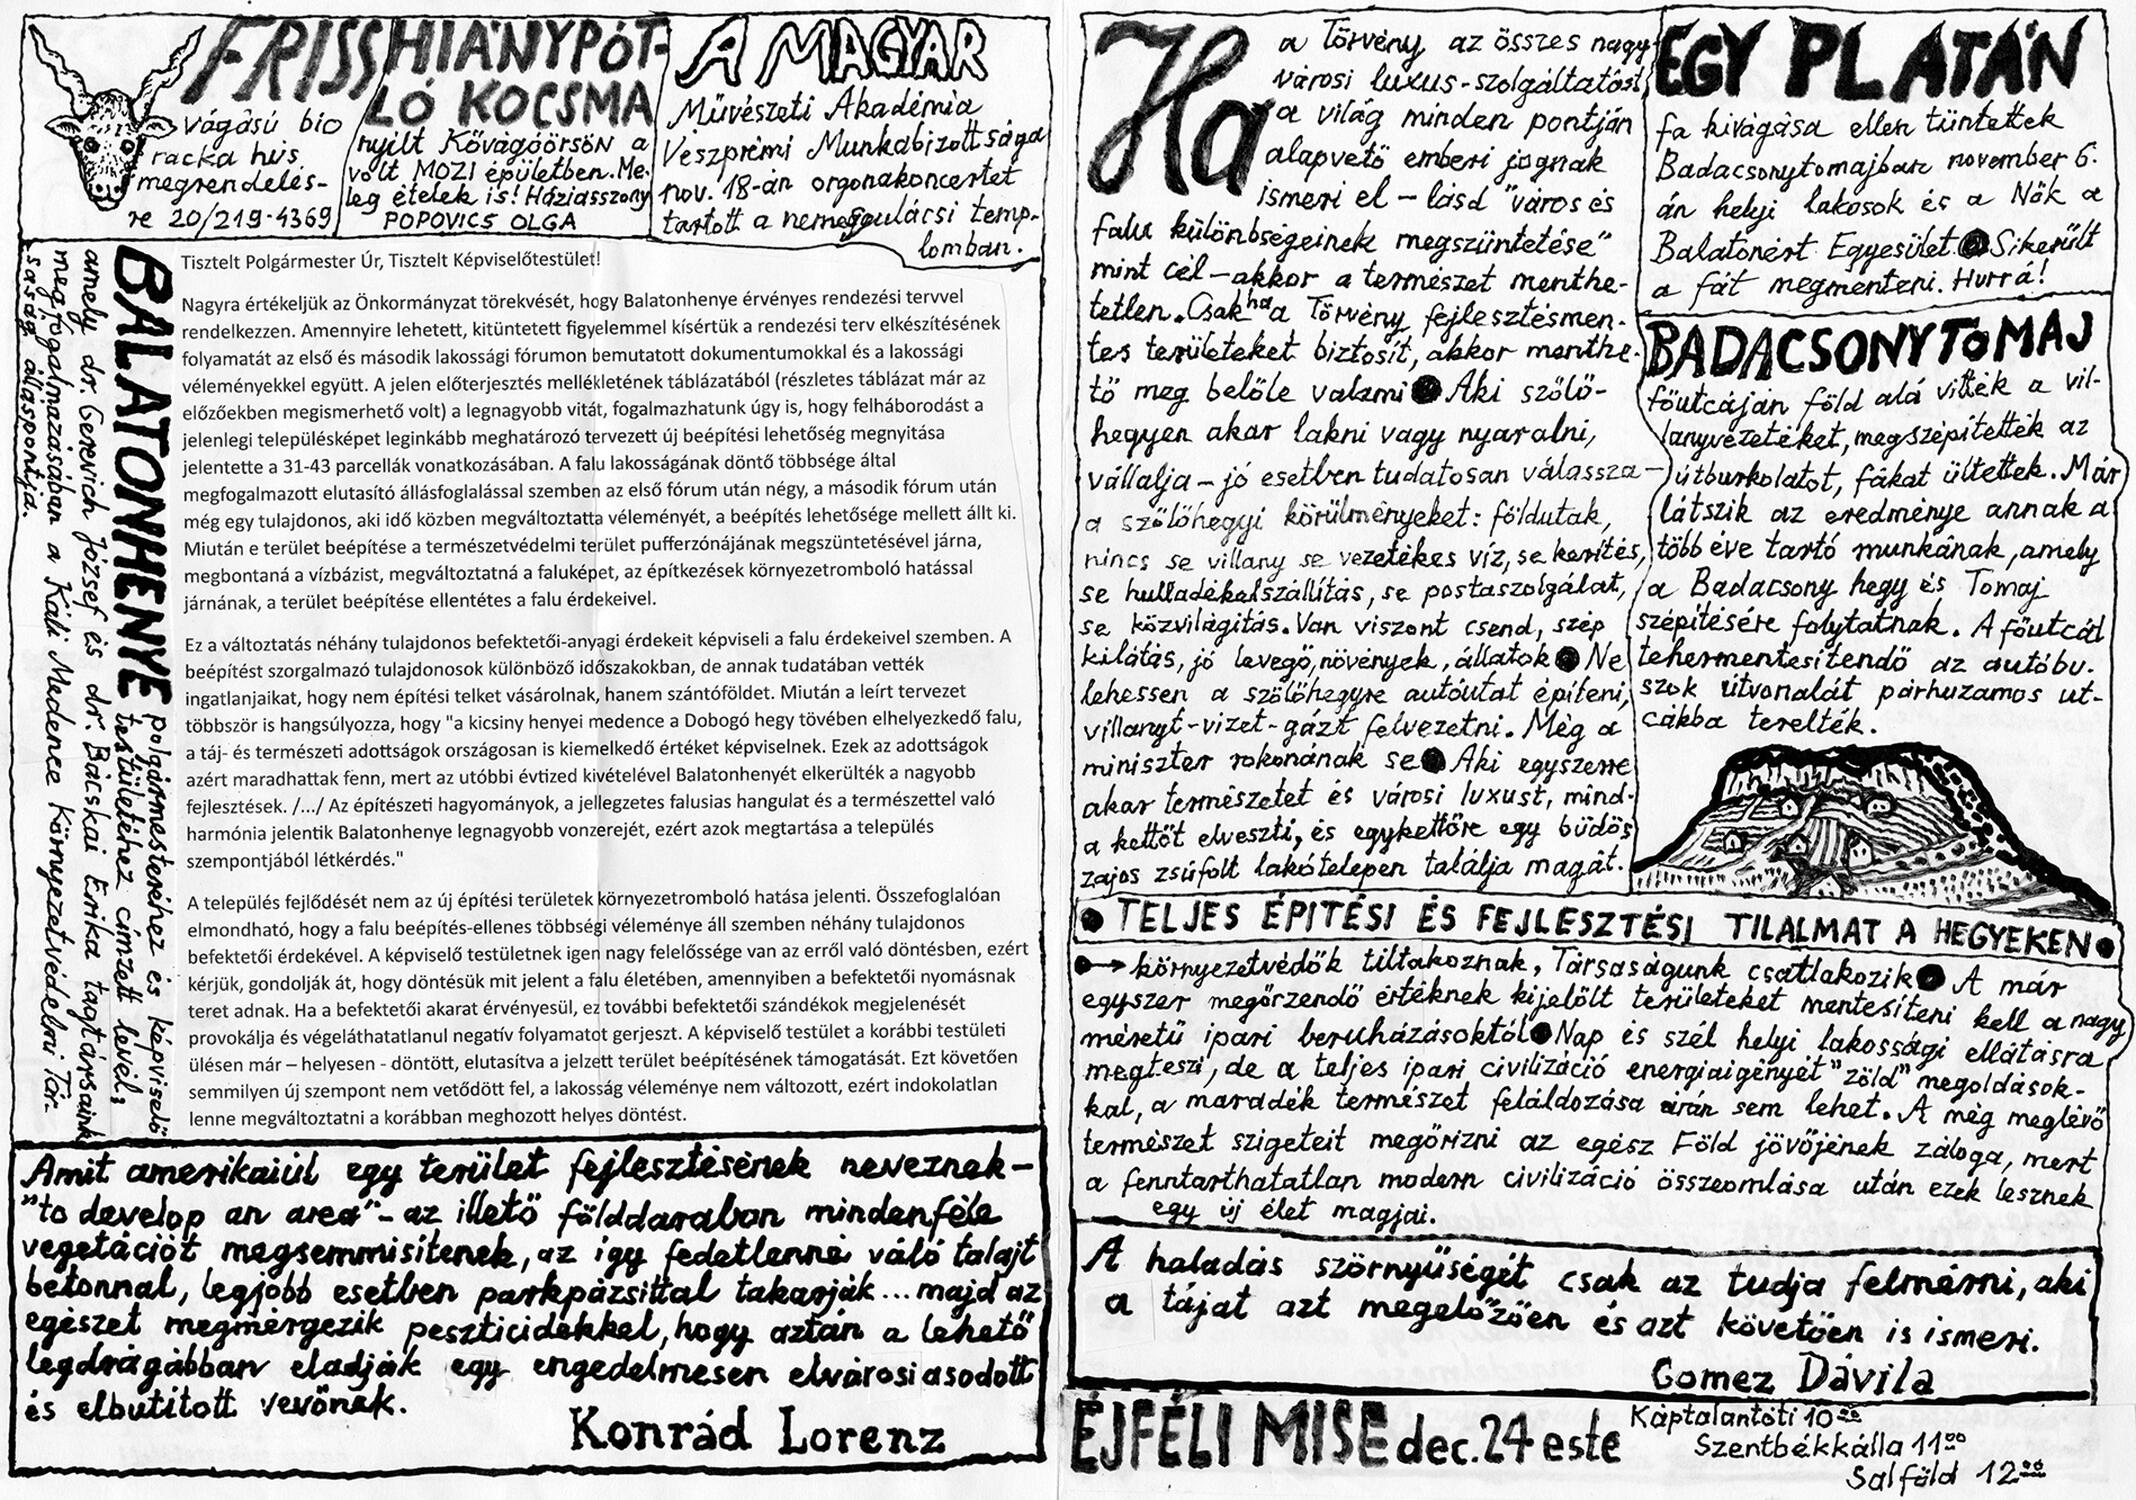 FRISS
vágású bio
racka hús
megrendelés-
re 20/219-4369
HIÁNYPÓT-
LÓ KOCSMA
nyílt Kővágóörsön a
volt MOZI épületben. Me-
leg ételek is! Háziasszony
POPOVICS OLGA
A MAGYAR
Művészeti Akadémia
Veszprémi Munkabizottsága
nov. 18-án orgonakoncertet
tartott a nemesgulácsi temp-
lomban.
BALATONHENYE polgármesteréhez és képviselő
testületéhez címzett levél,
amely dr. Gerevich József és dr. Bácskai Erika tagtársaink
megfogalmazásában a Káli Medence Környezetvédelmi Tár-
saság álláspontja.
Tisztelt Polgármester Úr, Tisztelt Képviselőtestület!
Nagyra értékeljük az Önkormányzat törekvését, hogy Balatonhenye érvényes rendezési tervvel
rendelkezzen. Amennyire lehetett, kitüntetett figyelemmel kísértük a rendezési terv elkészítésének
folyamatát az első és második lakossági fórumon bemutatott dokumentumokkal és a lakossági
véleményekkel együtt. A jelen előterjesztés mellékletének táblázatából (részletes táblázat már az
előzőekben megismerhető volt) a legnagyobb vitát, fogalmazhatunk úgy is, hogy felháborodást a
jelenlegi településképet leginkább meghatározó tervezett új beépítési lehetőség megnyitása
jelentette a 31-43 parcellák vonatkozásában. A falu lakosságának döntő többsége által
megfogalmazott elutasító állásfoglalással szemben az első fórum után négy, a második fórum után
még egy tulajdonos, aki idő közben megváltoztatta véleményét, a beépítés lehetősége mellett állt ki.
Miután e terület beépítése a természetvédelmi terület pufferzónájának megszüntetésével járna,
megbontaná a vízbázist, megváltoztatná a faluképet, az építkezések környezetromboló hatással
járnának, a terület beépítése ellentétes a falu érdekeivel.
Ez a változtatás néhány tulajdonos befektetői-anyagi érdekeit képviseli a falu érdekeivel szemben. A
beépítést szorgalmazó tulajdonosok különböző időszakokban, de annak tudatában vették
ingatlanjaikat, hogy nem építési telket vásárolnak, hanem szántóföldet. Miután a leírt tervezet
többször is hangsúlyozza, hogy "a kicsiny henyei medence a Dobogó hegy tövében elhelyezkedő falu,
a táj- és természeti adottságok országosan is kiemelkedő értéket képviselnek. Ezek az adottságok
azért maradhattak fenn, mert az utóbbi évtized kivételével Balatonhenyét elkerülték a nagyobb
fejlesztések. /.../ Az építészeti hagyományok, a jellegzetes falusias hangulat és a természettel való
harmónia jelentik Balatonhenye legnagyobb vonzerejét, ezért azok megtartása a település
szempontjából létkérdés."
A település fejlődését nem az új építési területek környezetromboló hatása jelenti. Összefoglalóan
elmondható, hogy a falu beépítés-ellenes többségi véleménye áll szemben néhány tulajdonos
befektetői érdekével. A képviselő testületnek igen nagy felelőssége van az erről való döntésben, ezért
kérjük, gondolják át, hogy döntésük mit jelent a falu életében, amennyiben a befektetői nyomásnak
teret adnak. Ha a befektetői akarat érvényesül, ez további befektetői szándékok megjelenését
provokálja és végeláthatatlanul negatív folyamatot gerjeszt. A képviselő testület a korábbi testületi
ülésen már – helyesen - döntött, elutasítva a jelzett terület beépítésének támogatását. Ezt követően
semmilyen új szempont nem vetődött fel, a lakosság véleménye nem változott, ezért indokolatlan
lenne megváltoztatni a korábban meghozott helyes döntést.
Amit amerikaiúl egy terület fejlesztésének neveznek—
"to develop an area"- az illető földdarabon mindenféle
vegetációt megsemmisítenek, az így fedetlenné váló talajt
betonnal, legjobb esetben parkpázsittal takarják... majd az
egészet megmérgezik peszticidekkel, hogy aztán a lehető
legdrágábban eladják egy engedelmesen elvárosiasodott
és elbutított vevőnek.
Konrád Lorenz
Ha a Törvény az összes nagy-
városi luxus-szolgáltatást
a világ minden pontján
alapvető emberi jognak
ismeri el – lásd "város és
falu különbségeinek megszüntetése"
mint cél – akkor a természet menthe-
tetlen. Csak ha a Törvény fejlesztésmen-
tes területeket biztosít, akkor menthe-
tő meg belőle valami ● Aki szőlő-
hegyen akar lakni vagy nyaralni,
vállalja – jó esetben tudatosan válassza –
a szőlőhegyi körülményeket: földutak,
nincs se villany se vezetékes víz, se kerítés,
se hulladékelszállítás, se postaszolgálat,
se közvilágítás. Van viszont csend, szép
kilátás, jó levegő, növények, állatok ● Ne
lehessen a szőlőhegyre autóutat építeni,
villanyt-vizet-gázt felvezetni. Még a
miniszter rokonának se ● Aki egyszerre
akar természetet és városi luxust, mind-
a kettőt elveszti, és egykettőre egy büdös
zajos zsúfolt lakótelepen találja magát.
EGY PLATÁN
fa kivágása ellen tüntettek
Badacsonytomajban november 6.
án helyi lakosok és a Nők a
Balatonért Egyesület ● Sikerült
a fát megmenteni. Hurrá!
BADACSONYTOMAJ
főutcáján föld alá vitték a vil-
lanyvezetéket, megszépítették az
útburkolatot, fákat ültettek. Már
látszik az eredménye annak a
több éve tartó munkának, amely
a Badacsony hegy és Tomaj
szépítésére folytatnak. A főutcát
tehermentesítendő az autóbu-
szok útvonalát párhuzamos ut-
cákba terelték.
● TELJES ÉPITÉSI ÉS FEJLESZTÉSI TILALMAT A HEGYEKEN ●
●→ környezetvédők tiltakoznak, Társaságunk csatlakozik ● A már
egyszer megőrzendő értéknek kijelölt területeket mentesíteni kell a nagy
méretű ipari beruházásoktól ● Nap és szél helyi lakossági ellátásra
megteszi, de a teljes ipari civilizáció energiaigényét "zöld" megoldások-
kal, a maradék természet feláldozása árán sem lehet. A még meglévő
természet szigeteit megőrizni az egész Föld jövőjének záloga, mert
a fenntarthatatlan modern civilizáció összeomlása után ezek lesznek
egy új élet magjai.
A haladás szörnyűségét csak az tudja felmérni, aki
a tájat azt megelőzően és azt követően is ismeri.
Gomez Dávila
ÉJFÉLI MISE dec. 24 este
Káptalantóti 10⁰⁰
Szentbékkálla 11⁰⁰
Salföld 12⁰⁰